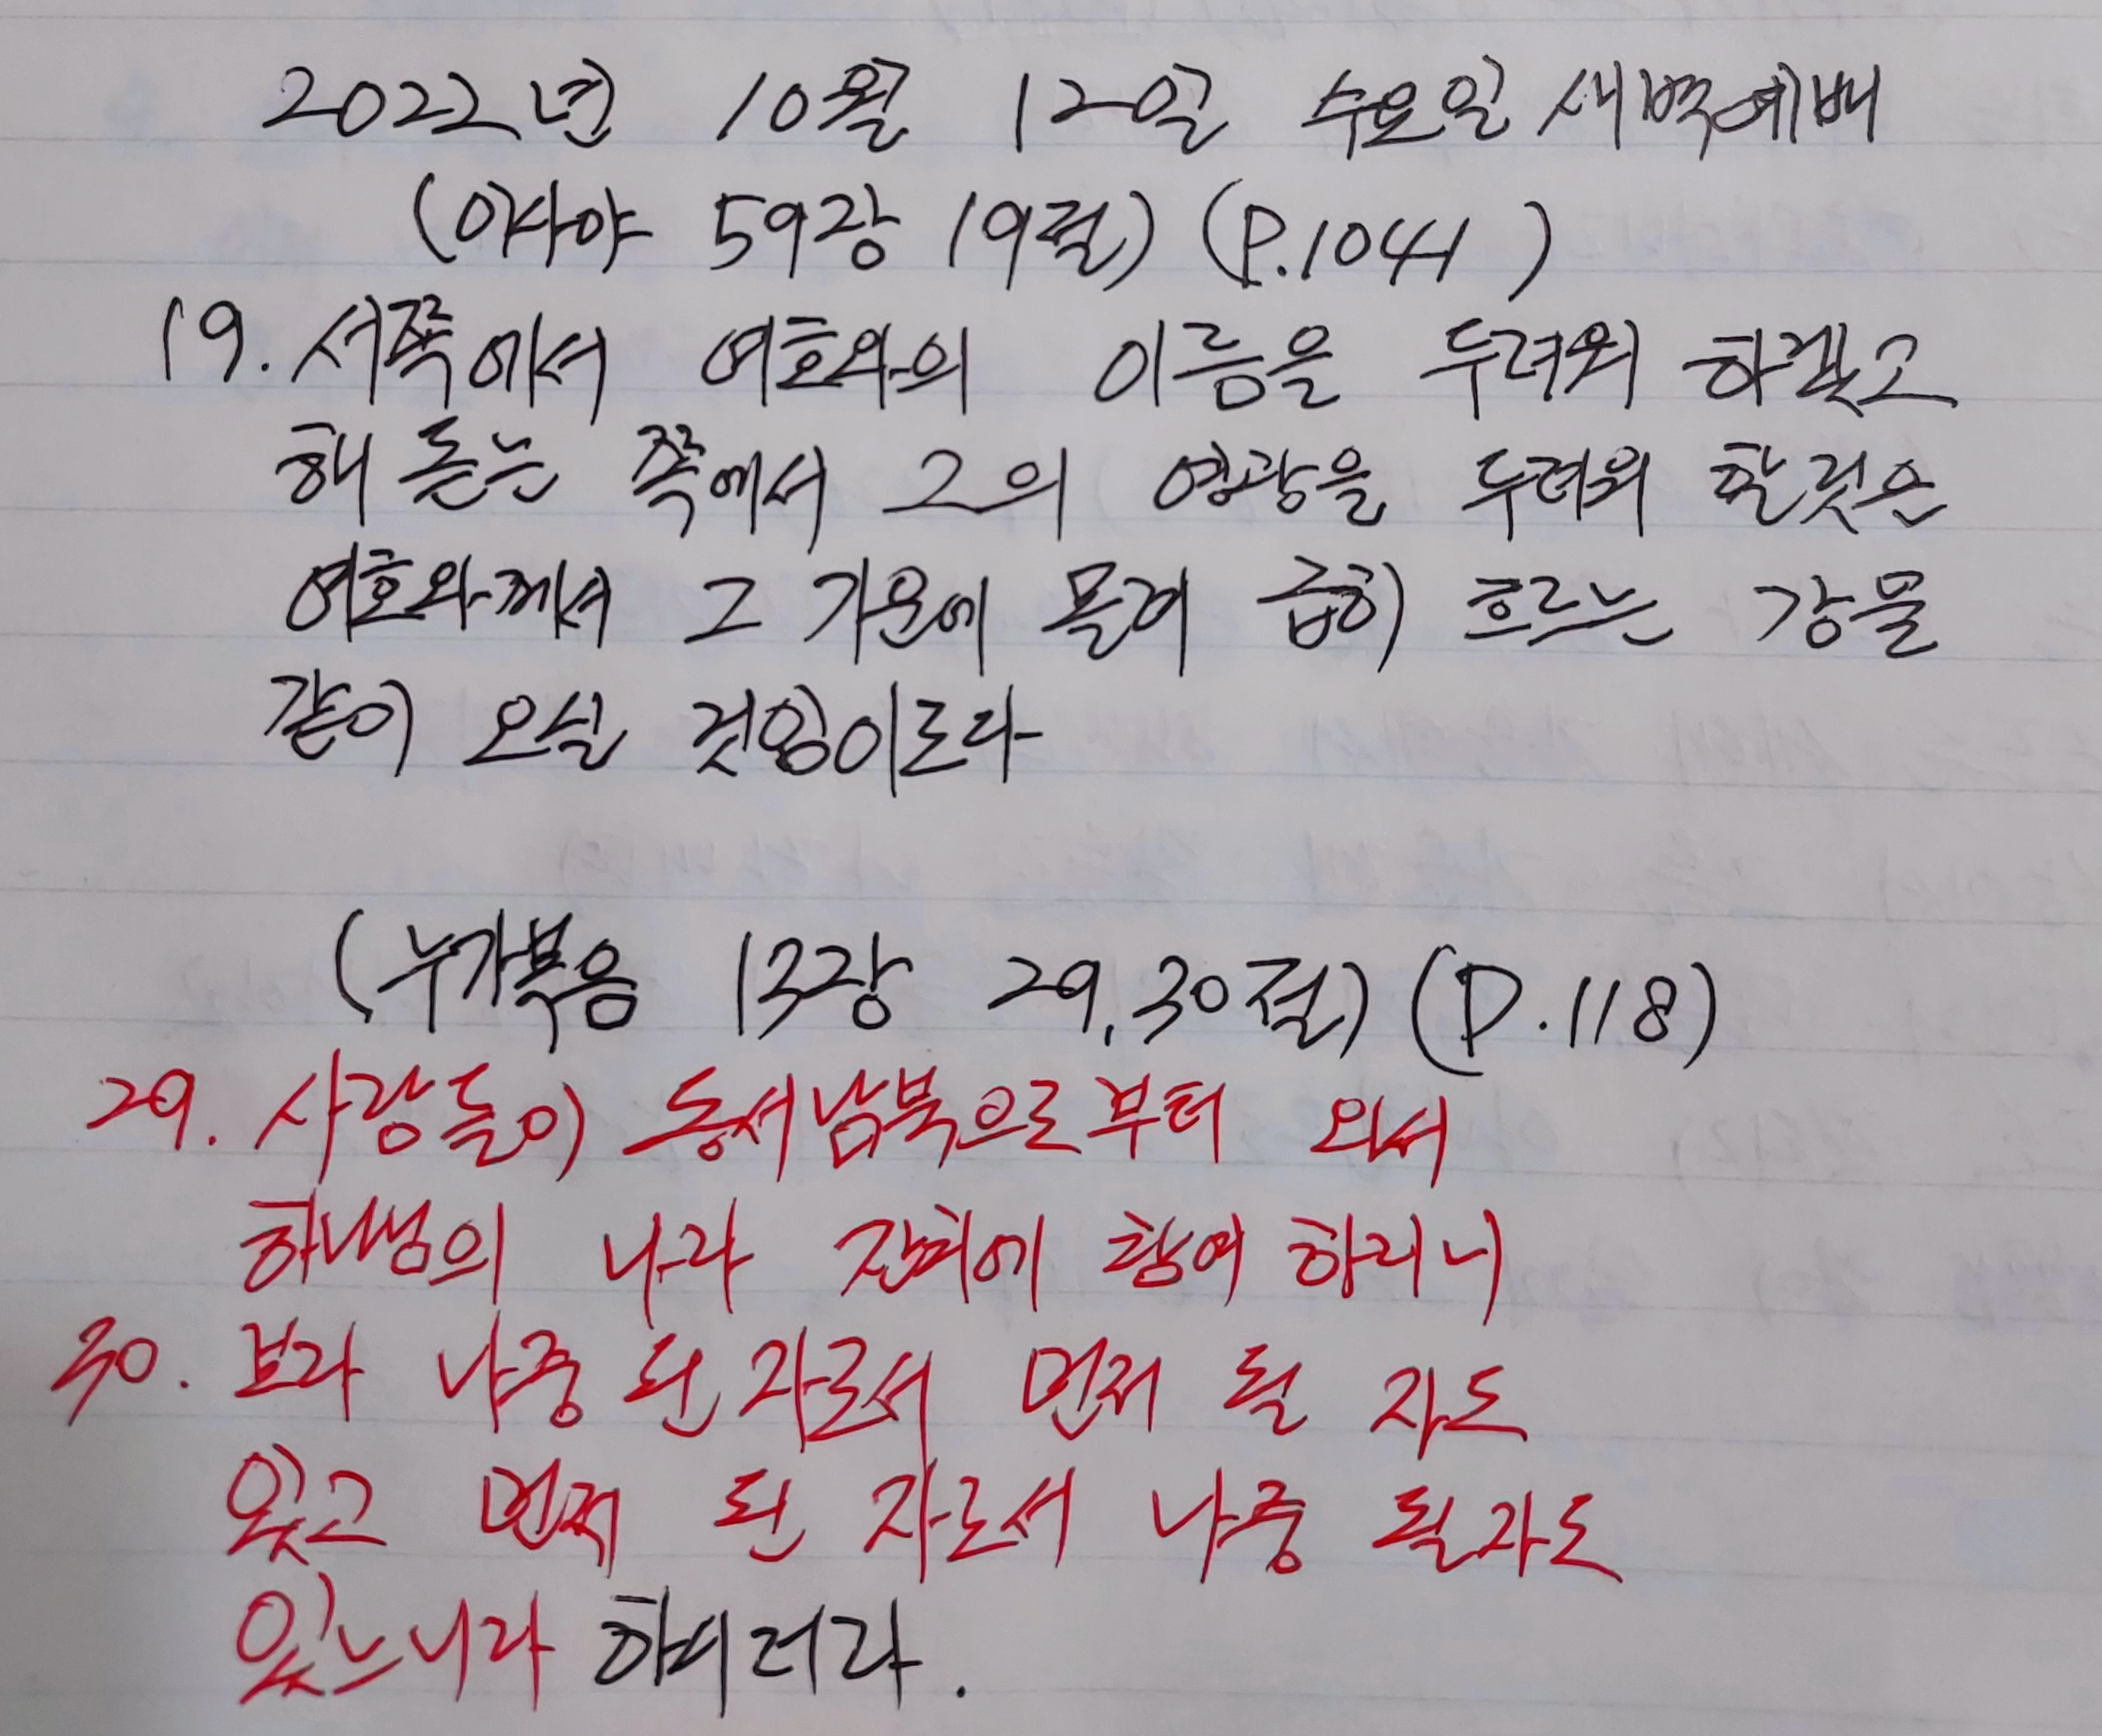 2022년 10월 12일 수요일 새벽예배
(이사야 59장 19절) (P.1041)
19. 서쪽에서 여호와의 이름을 두려워 하겠고
해 돋는 쪽에서 그의 영광을 두려워 할것은
여호와께서 그 기운에 몰려 급히 흐르는 강물
같이 오실 것임이로다
(누가복음 13장 29,30절) (P.118)
29. 사람들이 동서남북으로부터 와서
하나님의 나라 잔치에 참여 하리니
30. 보라 나중 된 자로서 먼저 될 자도
있고 먼저 된 자로서 나중 될자도
있느니라 하시더라.